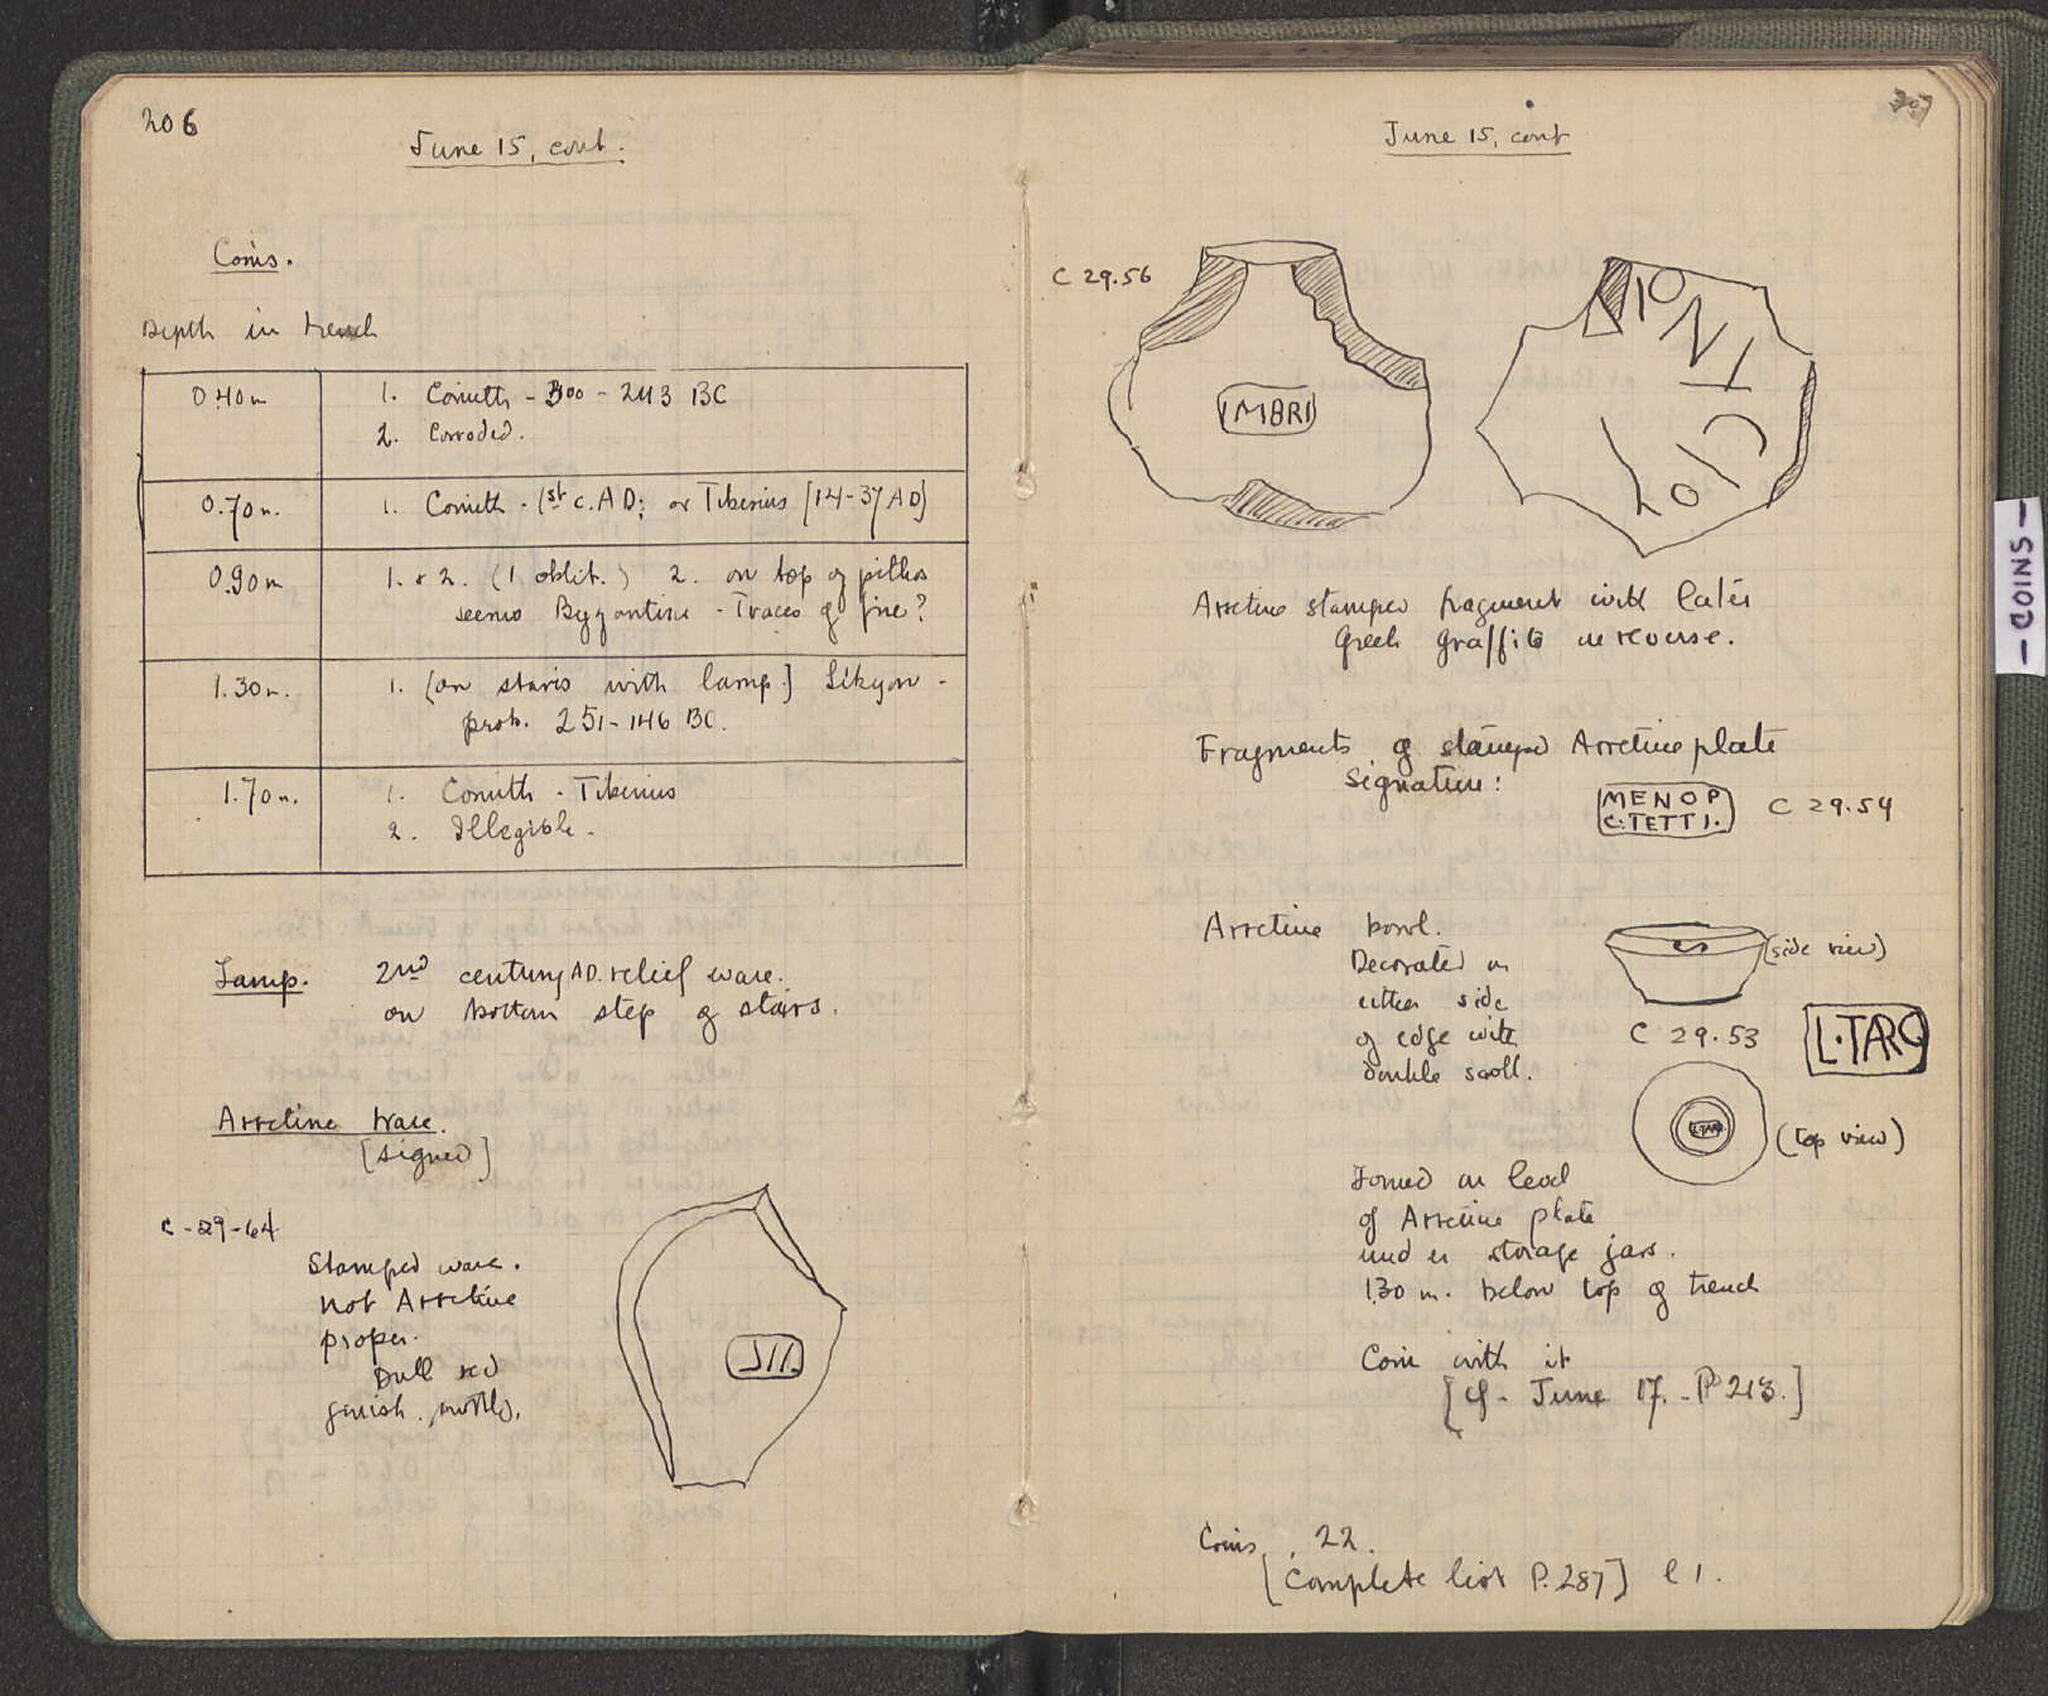 206
June 15, cont.
Coins.
Depth in trench
0.40 m
1. Corinth - 300 - 243 BC
2. Corroded.
0.70 m.
1. Corinth - 1st c. AD; or Tiberius [14-37 AD]
0.90 m
1. & 2. (1 oblit.) 2. on top of pithos
seems Byzantine - Traces of fire?
1.30 m.
1. [on stairs with lamp.] Sikyon -
prob. 251-146 BC.
1.70 m.
1. Corinth - Tiberius
2. Illegible -
Lamp. 2nd century AD. relief ware.
on bottom step of stairs.
Arretine Ware.
[signed]
C-29-64
Stamped ware.
not Arretine
proper.
Dull red
finish
JII.
207
June 15, cont
C 29.56
IMBRI
Arretine stamped fragment with later
Greek graffito on reverse.
Fragments of stamped Arretine plate
signature:
MENOP
C·TETTI.
C 29.54
Arretine bowl.
Decorated on
either side
of edge with
double scroll.
(side view)
C 29.53
L·TARQ
L·TARQ
(top view)
Found on level
of Arretine plate
under storage jars.
1.30 m. below top of trench
Coin with it
[cf - June 17. - P 213.]
Coins, 22.
[Complete list P. 287] e 1.
- COINS -